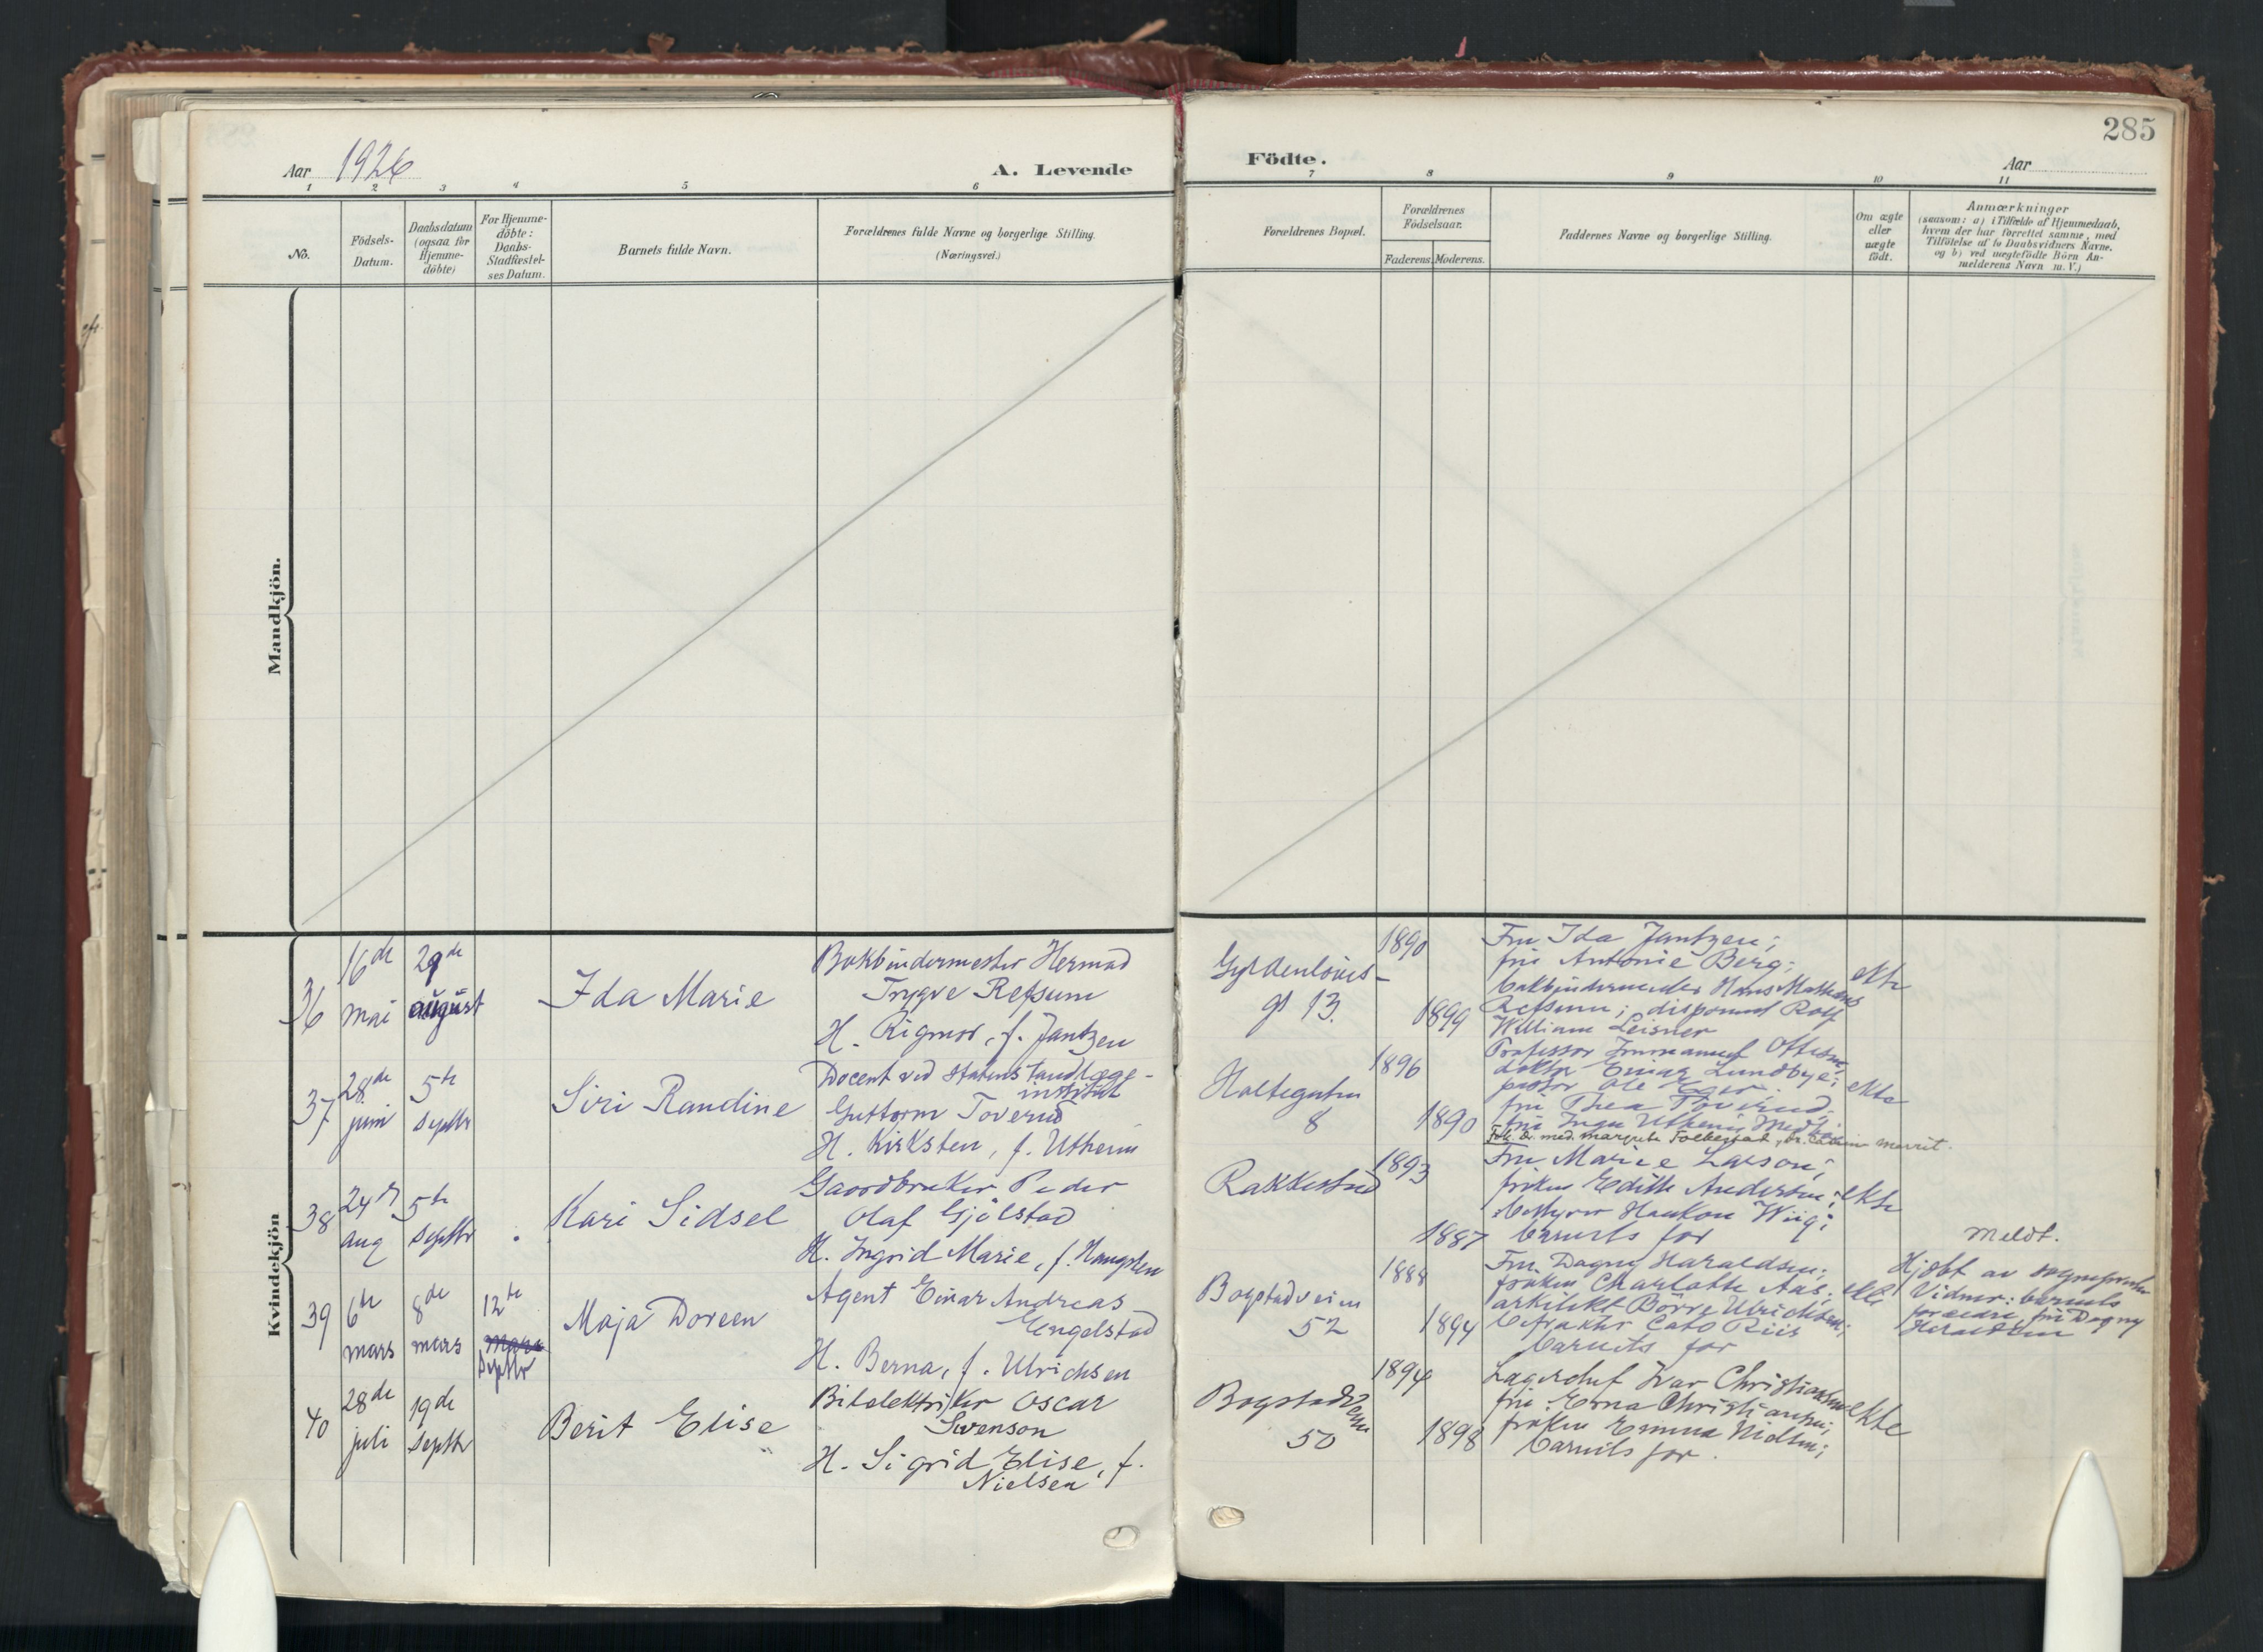 285
Aar 1926
A. Levende
Födte.
Aar
1 2 3 4 5 6 7 8 9 10 11
No.
Födsels-
Datum.
Daabsdatum
(ogsaa for
Hjemme-
döbte)
For Hjemme-
döbte:
Daabs-
Stadfæstel-
ses Datum.
Barnets fulde Navn.
Forældrenes fulde Navne og borgerlige Stilling.
(Næringsvei.)
Forældrenes Bopæl.
Forældrenes
Födselsaar.
Faderens. Moderens.
Faddernes Navne og borgerlige Stilling.
Om ægte
eller
uægte
födt.
Anmærkninger
(saasom: a) i Tilfælde af Hjemmedaab,
hvem der har forrettet samme, med
Tilföielse af to Daabsvidners Navne,
og b) ved uægtefödte Börn An-
melderens Navn m. V.)
Mandkjön.
Kvindekjön
36
16de
mai
29de
august
Ida Marie
Bokbindermester Hermod
Trygve Refsum
H. Rigmor, f. Jantzen
Gyldenløves-
gt 13.
1890
1899
Fru Ida Jantzen;
fru Antonie Berg;
bokbindermester Hans Matheus
Refsum; disponent Rolf
William Leisner
ekte
37
28de
juni
5te
septbr
Siri Randine
Docent ved Statens Tandlæge-
institut
Guttorm Toverud
H. Kirsten, f. Utheim
Holtegaten
8
1896
1890
Professor Immanuel Ottesen;
doktor Einar Lundbye;
pastor Ole Eger;
fru Thea Toverud;
fru Inga Utheim
ekte
38
24de
aug
5te
septbr
Kari Sidsel
Gaardbruker Peder
Olaf Gjølstad
H. Ingrid Marie, f. Haugsten
Rakkestad
1893
1887
Fru Marie Larson;
frøken Edith Andersen;
bestyrer Haakon Wiig;
barnets far
ekte
39
6te
mars
8de
mars
12te
mars
septbr
Maja Doreen
Agent Einar Andreas
Engelstad
H. Berna, f. Ulrichsen
Bogstadveien
52
1888
1894
Fru Dagny Haraldsen;
frøken Charlotte Aas;
arkitekt Børre Ulrichsen;
Cato Riis
barnets far
ekte
Meldt.
Hjdbt av sogneprest
Vidner: barnets
forældre, fru Dagny
Haraldsen
40
28de
juli
19de
septbr
Berit Elise
Bilelektriker Oscar
Svenson
H. Sigrid Elise, f.
Nielsen
Bogstadveien
50
1894
1898
Lagerchef Ivar Christiansen
fru Erna Christiansen;
frøken Emma Nielsen;
barnets far.
ekte